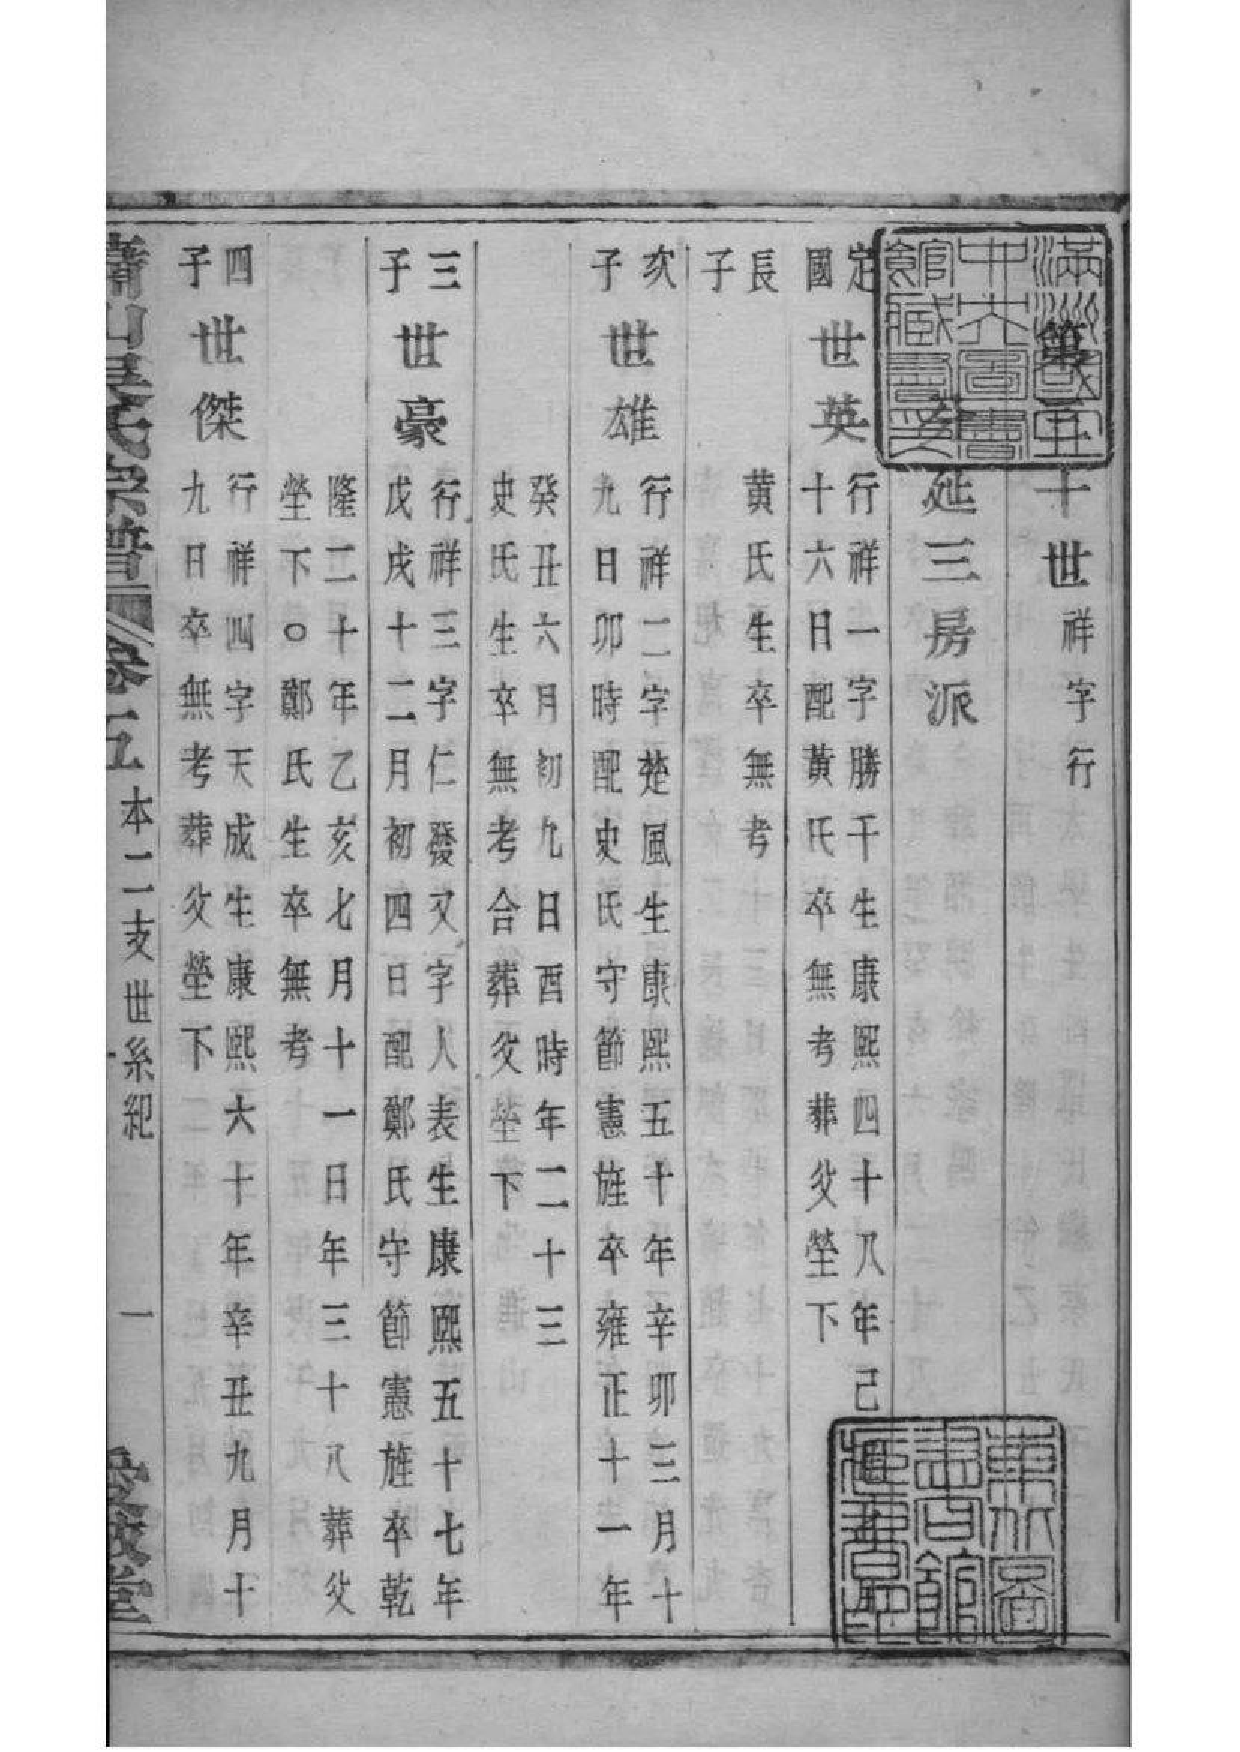 第五十世祥字行
延三房派
定國長子
世英
行祥一字勝千生康熙四十八年己
十六日配黃氏卒無考葬父塋下
黃氏生卒無考
次子
世雄
行祥二字楚風生康熙五十年辛卯三月十
九日卯時配史氏守節憲旌卒雍正十一年
癸丑六月初九日酉時年二十三
史氏生卒無考合葬父塋下
三子
世豪
行祥三字仁發又字人表生康熙五十七年
戊戌十二月初四日配鄭氏守節憲旌卒乾
隆二十年乙亥七月十一日年三十八葬父
塋下○鄭氏生卒無考
四子
世傑
行祥四字天成生康熙六十年辛丑九月十
九日卒無考葬父塋下
蕭山吳氏宗譜
卷十五
本二支世系紀
一
滿洲國中央圖書館藏書印
東北圖書館